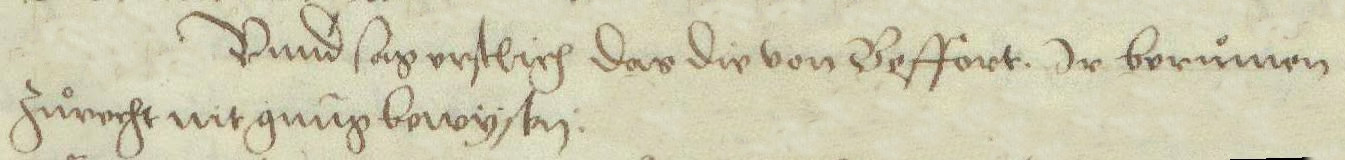 Vnnd sag erstlich das die von Beffort. Ir berůmen
zůrecht nit gnůg bewysen.